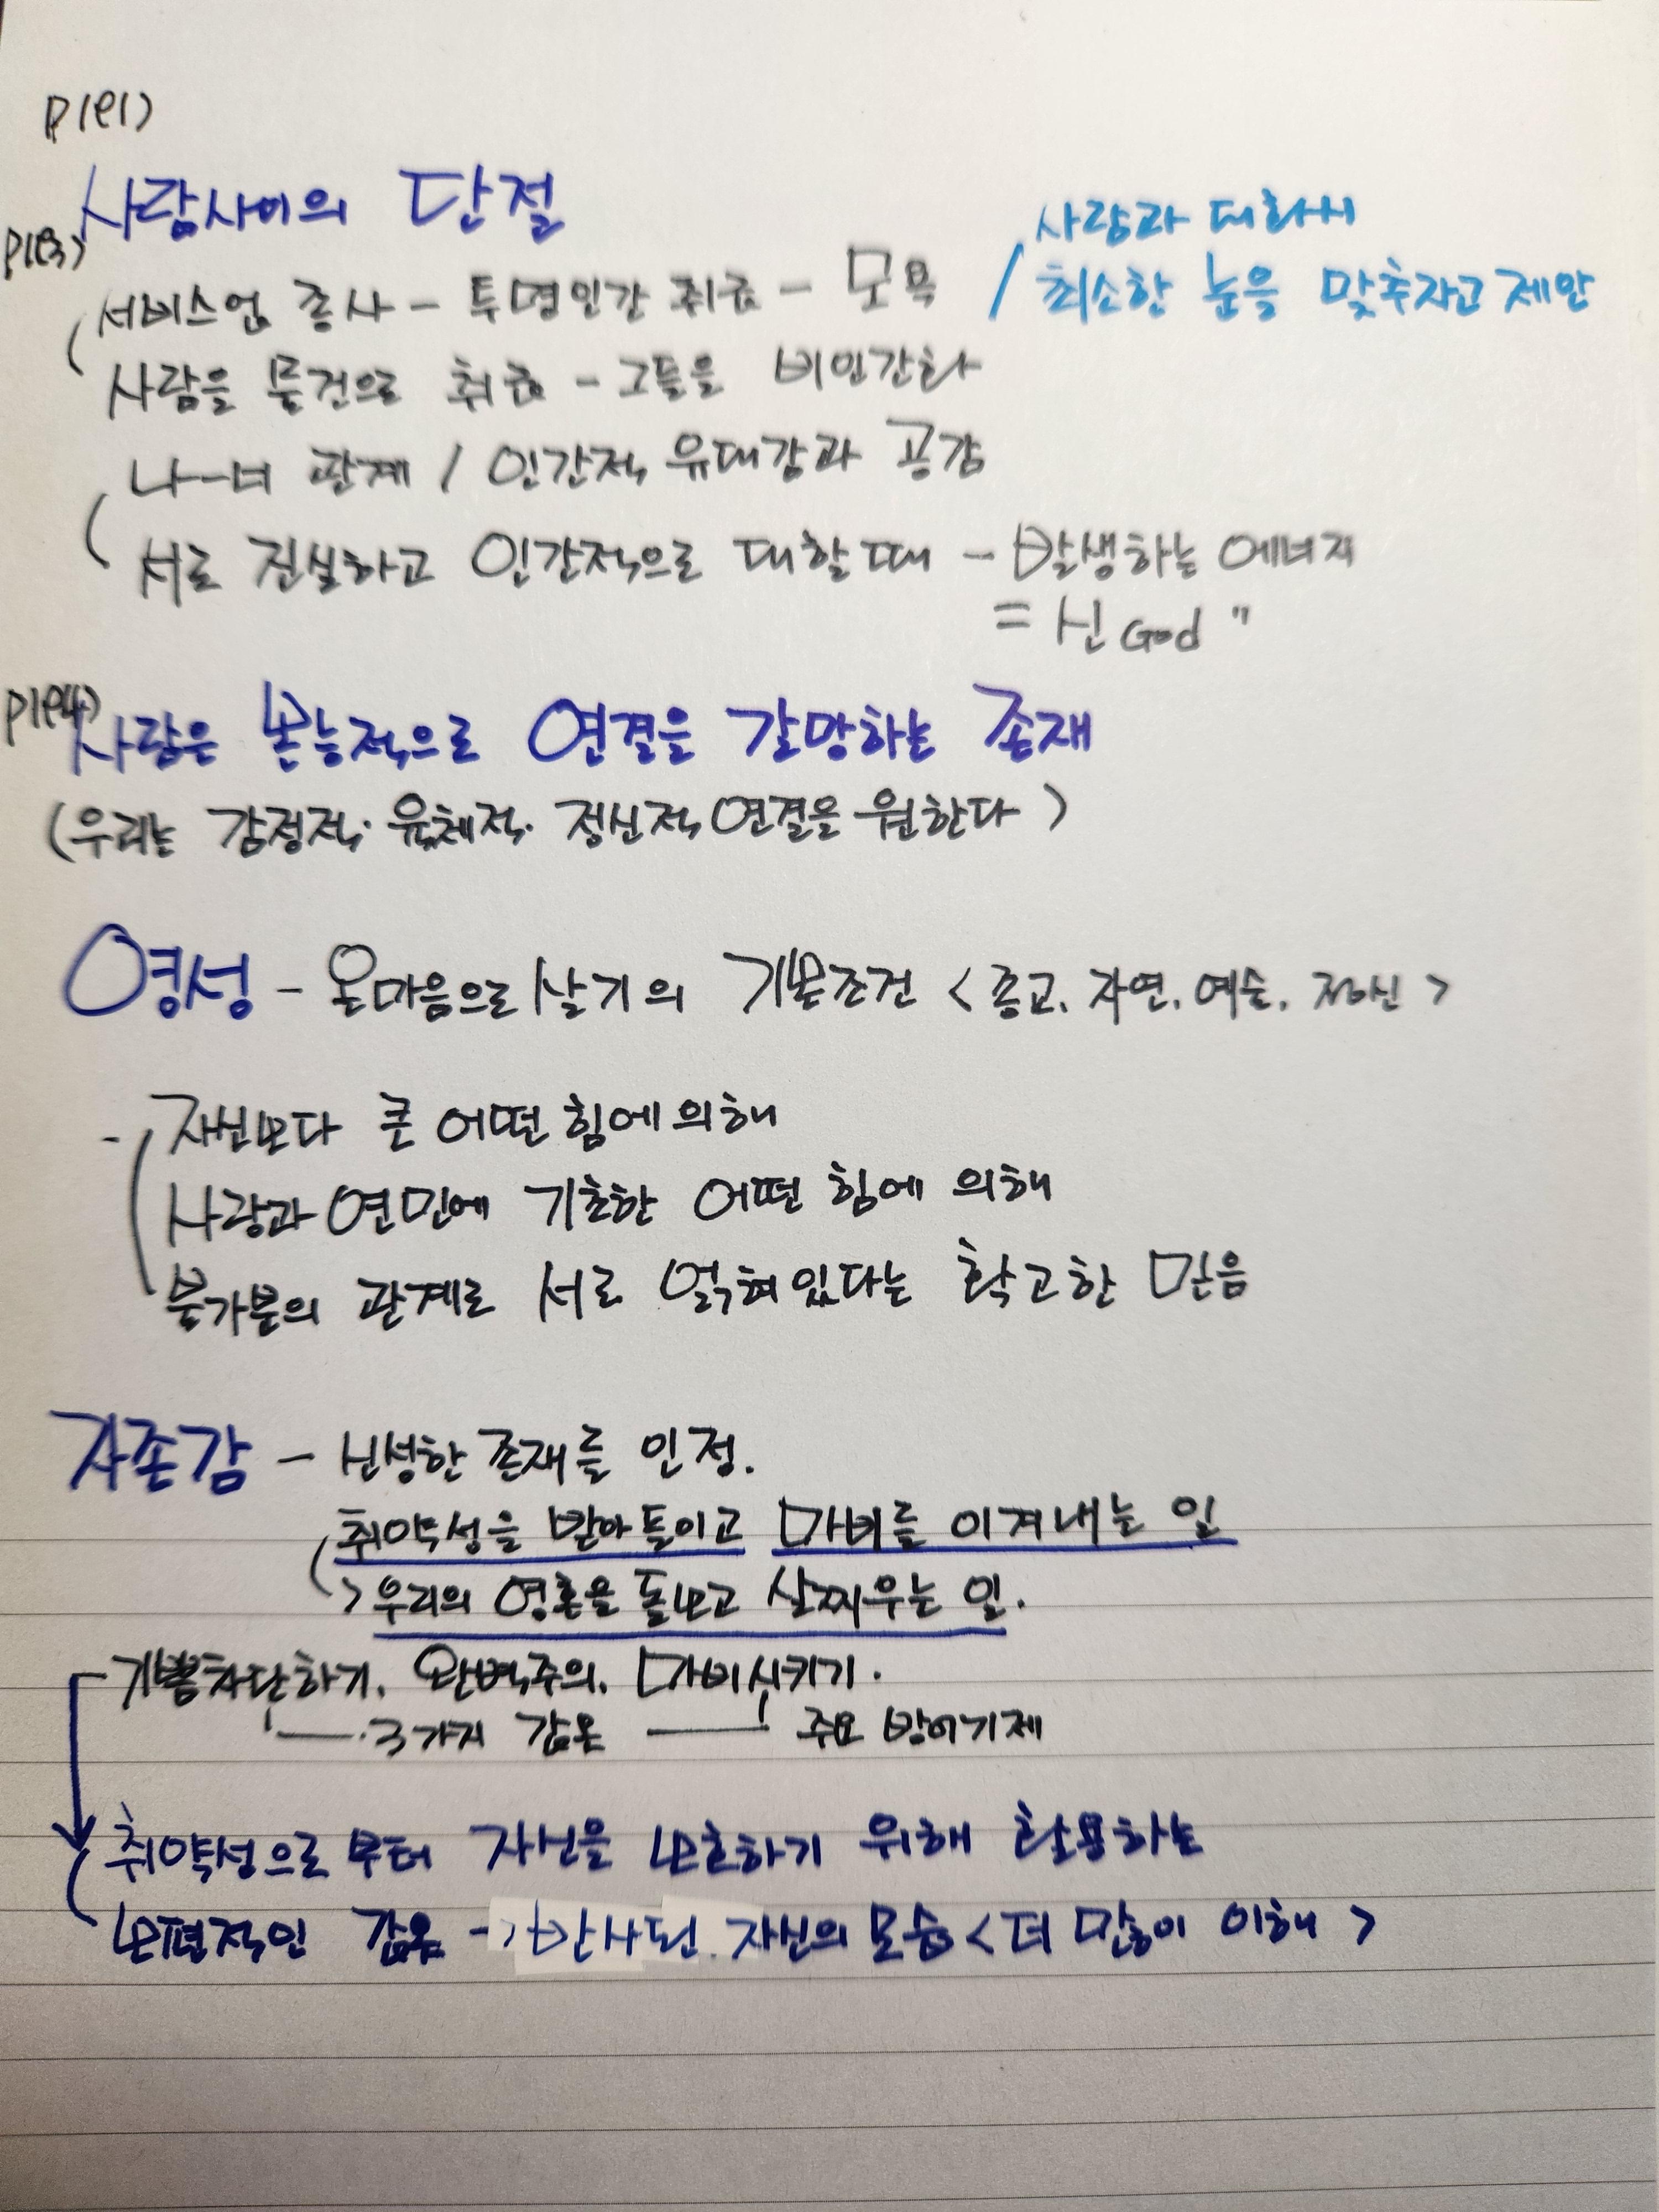 P191)
사람사이의 단절
P193)
서비스업 종사 - 투명인간 취급 - 모욕 / 사람과 대화시
최소한 눈을 맞추자고 제안
사람을 물건으로 취급 - 그들을 비인간화
나-너 관계 / 인간적 유대감과 공감
서로 진실하고 인간적으로 대할때 - 발생하는 에너지
= 신 God "
P194)
사람은 본능적으로 연결을 갈망하는 존재
(우리는 감정적. 육체적. 정신적 연결을 원한다)
영성 - 온마음으로 살기의 기본조건 <종교. 자연. 예술. 정신>
- 자신보다 큰 어떤 힘에 의해
사랑과 연민에 기초한 어떤 힘에 의해
불가분의 관계로 서로 얽혀있다는 확고한 믿음
자존감 - 신성한 존재를 인정.
취약성을 받아들이고 마비를 이겨내는 일
> 우리의 영혼을 돌보고 살찌우는 일.
기쁨차단하기. 완벽주의. 마비시키기.
3가지 갑옷 주요 방어기제
취약성으로 부터 자신을 보호하기 위해 활용하는
보편적인 갑옷 -> 반사된 자신의 모습 <더 많이 이해>